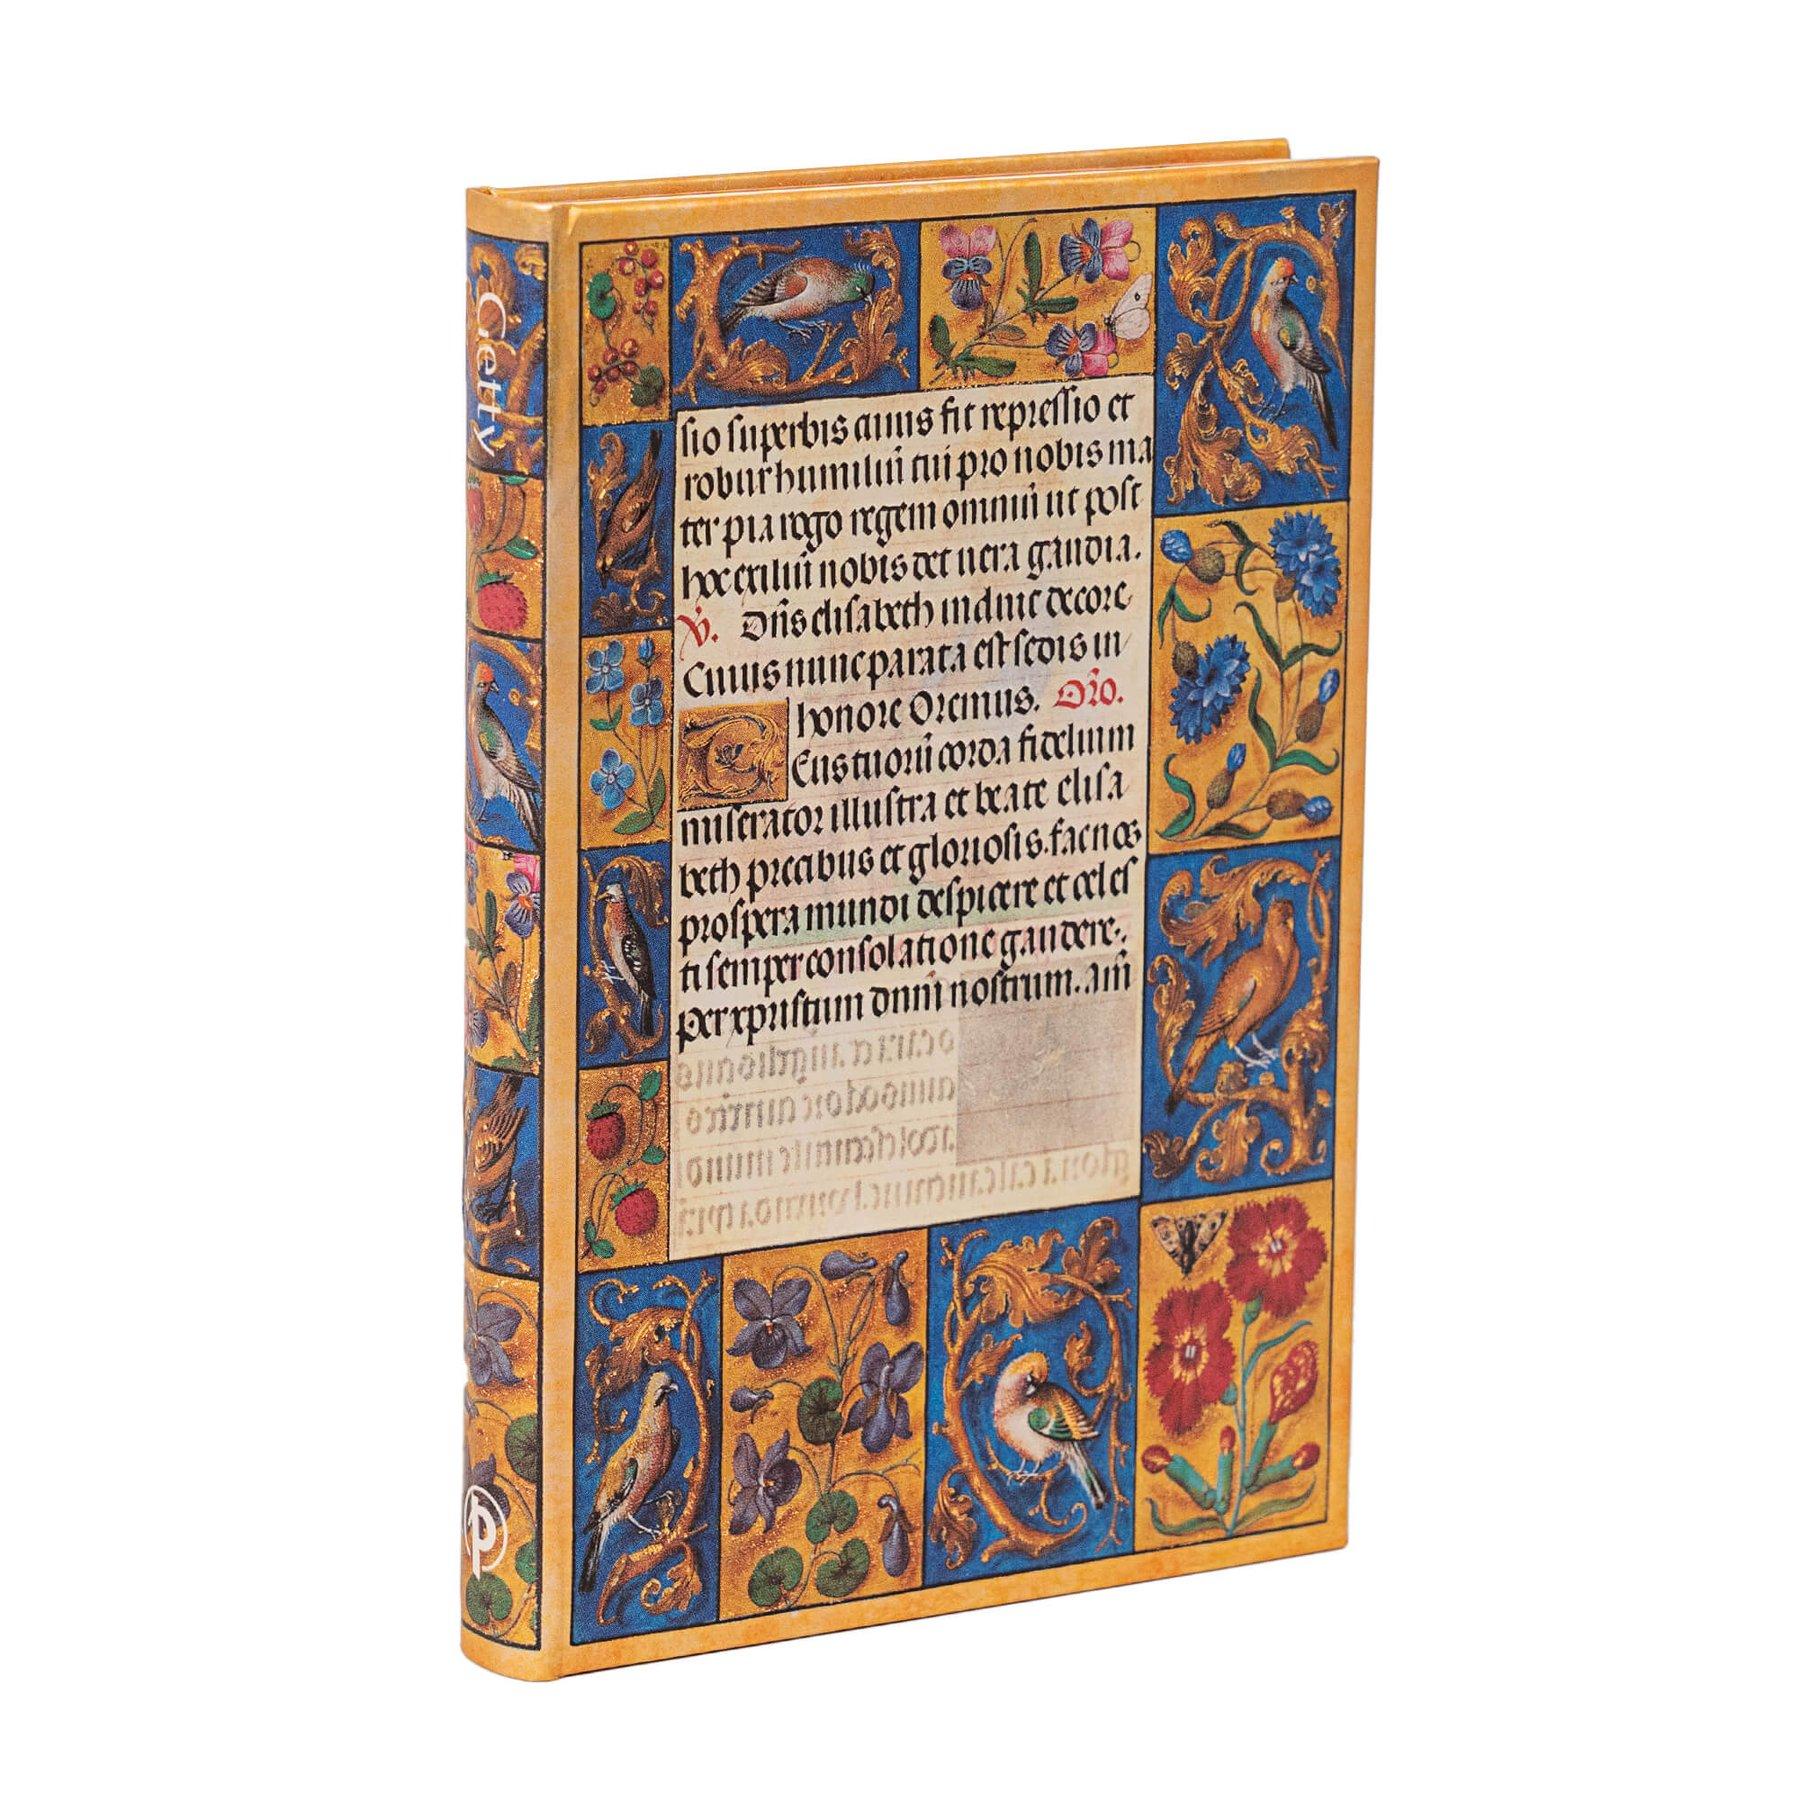 Getty
sio superbis cuius fit repressio et
robur humiliū tui pro nobis ma
ter pia rogo regem omniū ut post
hoc exiliū nobis det uera gaudia.
V̄. Dn̄s elisabeth induit decore
Cuius nunc parata est sedis in
honore Oremus. Or̄o.
TEus tuorū corda fidelium
miserator illustra et beate elisa
beth precibus et gloriosis. fac nos
prospera mundi despicere et celes
ti semper consolatione gaudere.
per xpristum dnm̄ nostrum. Am̄
p